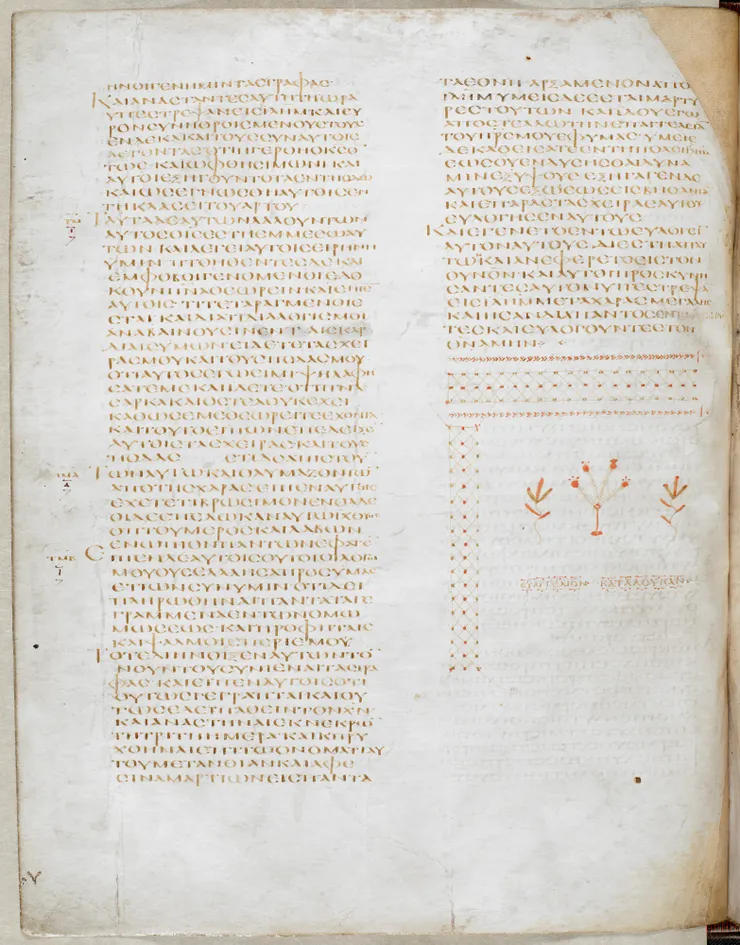 ΗΝΟΙΓΕΝΗΜΙΝΤΑϹΓΡΑΦΑϹ
ΚΑΙΑΝΑϹΤΑΝΤΕϹΑΥΤΗΤΗΩΡΑ
ΥΠΕϹΤΡΕΨΑΝΕΙϹΙΛΗΜΚΑΙΕΥ
ΡΟΝϹΥΝΗΘΡΟΙϹΜΕΝΟΥϹΤΟΥϹ
ΕΝΔΕΚΑΚΑΙΤΟΥϹϹΥΝΑΥΤΟΙϹ
ΛΕΓΟΝΤΑϹΟΤΙΗΓΕΡΘΗΟΚϹΟ
ΤΩϹΚΑΙΩΦΘΗϹΙΜΩΝΙΚΑΙ
ΑΥΤΟΙΕΞΗΓΟΥΝΤΟΤΑΕΝΤΗΟΔΩ
ΚΑΙΩϹΕΓΝΩϹΘΗΑΥΤΟΙϹΕΝ
ΤΗΚΛΑϹΕΙΤΟΥΑΡΤΟΥ
ΤΑΥΤΑΔΕΑΥΤΩΝΛΑΛΟΥΝΤΩΝ
ΑΥΤΟϹΟΙϹΕϹΤΗΕΜΜΕϹΩΑΥ
ΤΩΝΚΑΙΛΕΓΕΙΑΥΤΟΙϹΕΙΡΗΝΗ
ΥΜΙΝΠΤΟΗΘΕΝΤΕϹΔΕΚΑΙ
ΕΜΦΟΒΟΙΓΕΝΟΜΕΝΟΙΕΔΟ
ΚΟΥΝΠΝΑΘΕΩΡΕΙΝΚΑΙΕΙΠΕ
ΑΥΤΟΙϹΤΙΤΕΤΑΡΑΓΜΕΝΟΙΕ
ϹΤΑΙΚΑΙΔΙΑΤΙΔΙΑΛΟΓΙϹΜΟΙ
ΑΝΑΒΑΙΝΟΥϹΙΝΕΝΤΑΙϹΚΑΡ
ΔΙΑΙϹΥΜΩΝΕΙΔΕΤΕΤΑϹΧΕΙ
ΡΑϹΜΟΥΚΑΙΤΟΥϹΠΟΔΑϹΜΟΥ
ΟΤΙΑΥΤΟϹΕΓΩΕΙΜΙΨΗΛΑΦΗ
ϹΑΤΕΜΕΚΑΙΙΔΕΤΕΟΤΙΠΝΑ
ϹΑΡΚΑΚΑΙΟϹΤΕΑΟΥΚΕΧΕΙ
ΚΑΘΩϹΕΜΕΘΕΩΡΕΙΤΕΕΧΟΝΤΑ
ΚΑΙΤΟΥΤΟΕΙΠΩΝΕΠΕΔΕΙΞΕ
ΑΥΤΟΙϹΤΑϹΧΕΙΡΑϹΚΑΙΤΟΥϹ
ΠΟΔΑϹ ΕΤΙΔΕΑΠΙϹΤΟΥ
ΤΩΝΑΥΤΩΝΚΑΙΘΑΥΜΑΖΟΝΤΩ
ΑΠΟΤΗϹΧΑΡΑϹΕΙΠΕΝΑΥΤΟΙϹ
ΕΧΕΤΕΤΙΒΡΩϹΙΜΟΝΕΝΘΑΔΕ
ΟΙΔΕΕΠΕΔΩΚΑΝΑΥΤΩΙΧΘΥΟϹ
ΟΠΤΟΥΜΕΡΟϹΚΑΙΛΑΒΩΝ
ΕΝΩΠΙΟΝΠΑΝΤΩΝΕΦΑΓΕ
ΕΙΠΕΝΔΕΑΥΤΟΙϹΟΥΤΟΙΟΙΛΟΓΟΙ
ΜΟΥΟΥϹΕΛΑΛΗϹΑΠΡΟϹΥΜΑϹ
ΕΤΙΩΝϹΥΝΥΜΙΝΟΤΙΔΕΙ
ΠΛΗΡΩΘΗΝΑΙΠΑΝΤΑΤΑΓΕ
ΓΡΑΜΜΕΝΑΕΝΤΩΝΟΜΩ
ΜΩϹΕΩϹΚΑΙΠΡΟΦΗΤΑΙϹ
ΚΑΙΨΑΛΜΟΙϹΠΕΡΙΕΜΟΥ
ΤΟΤΕΔΙΗΝΟΙΞΕΝΑΥΤΩΝΤΟ
ΝΟΥΝΤΟΥϹΥΝΙΕΝΑΙΤΑϹΓΡΑ
ΦΑϹ ΚΑΙΕΙΠΕΝΑΥΤΟΙϹΟΤΙ
ΟΥΤΩϹΓΕΓΡΑΠΤΑΙΚΑΙΟΥ
ΤΩϹΕΔΕΙΠΑΘΕΙΝΤΟΝΧΝ
ΚΑΙΑΝΑϹΤΗΝΑΙΕΚΝΕΚΡΩ
ΤΗΤΡΙΤΗΗΜΕΡΑΚΑΙΚΗΡΥ
ΧΘΗΝΑΙΕΠΙΤΩΟΝΟΜΑΤΙΑΥ
ΤΟΥΜΕΤΑΝΟΙΑΝΚΑΙΑΦΕ
ϹΙΝΑΜΑΡΤΙΩΝΕΙϹΠΑΝΤΑ
ΤΑΕΘΝΗΑΡΞΑΜΕΝΟΝΑΠΟ
ΙΛΗΜΥΜΕΙϹΔΕΕϹΤΑΙΜΑΡΤΥ
ΡΕϹΤΟΥΤΩΝΚΑΙΙΔΟΥΕΓΩ
ΑΠΟϹΤΕΛΩΤΗΝΕΠΑΓΓΕΛΙΑ
ΤΟΥΠΡϹΜΟΥΕΦΥΜΑϹΥΜΕΙϹ
ΔΕΚΑΘΙϹΑΤΕΕΝΤΗΠΟΛΕΙΙΛΗΜ
ΕΩϹΟΥΕΝΔΥϹΗϹΘΑΙΔΥΝΑ
ΜΙΝΕΞΥΨΟΥϹΕΞΗΓΑΓΕΝΔΕ
ΑΥΤΟΥϹΕΞΩΕΩϹΕΙϹΒΗΘΑΝΙΑ
ΚΑΙΕΠΑΡΑϹΤΑϹΧΕΙΡΑϹΑΥΤΟΥ
ΕΥΛΟΓΗϹΕΝΑΥΤΟΥϹ
ΚΑΙΕΓΕΝΕΤΟΕΝΤΩΕΥΛΟΓΕΙ
ΑΥΤΟΝΑΥΤΟΥϹΔΙΕϹΤΗΑΠΑΥ
ΤΩΚΑΙΑΝΕΦΕΡΕΤΟΕΙϹΤΟΝ
ΟΥΝΟΝΚΑΙΑΥΤΟΙΠΡΟϹΚΥΝΗ
ϹΑΝΤΕϹΑΥΤΟΝΥΠΕϹΤΡΕΨΑ
ΕΙϹΙΛΗΜΜΕΤΑΧΑΡΑϹΜΕΓΑΛΗϹ
ΚΑΙΗϹΑΝΔΙΑΠΑΝΤΟϹΕΝΤΩ
ΤΕϹΚΑΙΕΥΛΟΓΟΥΝΤΕϹΤΟΝ
ΘΝΑΜΗΝ
ΕΥΑΓΓΕΛΙΟΝ ΚΑΤΑΛΟΥΚΑΝ